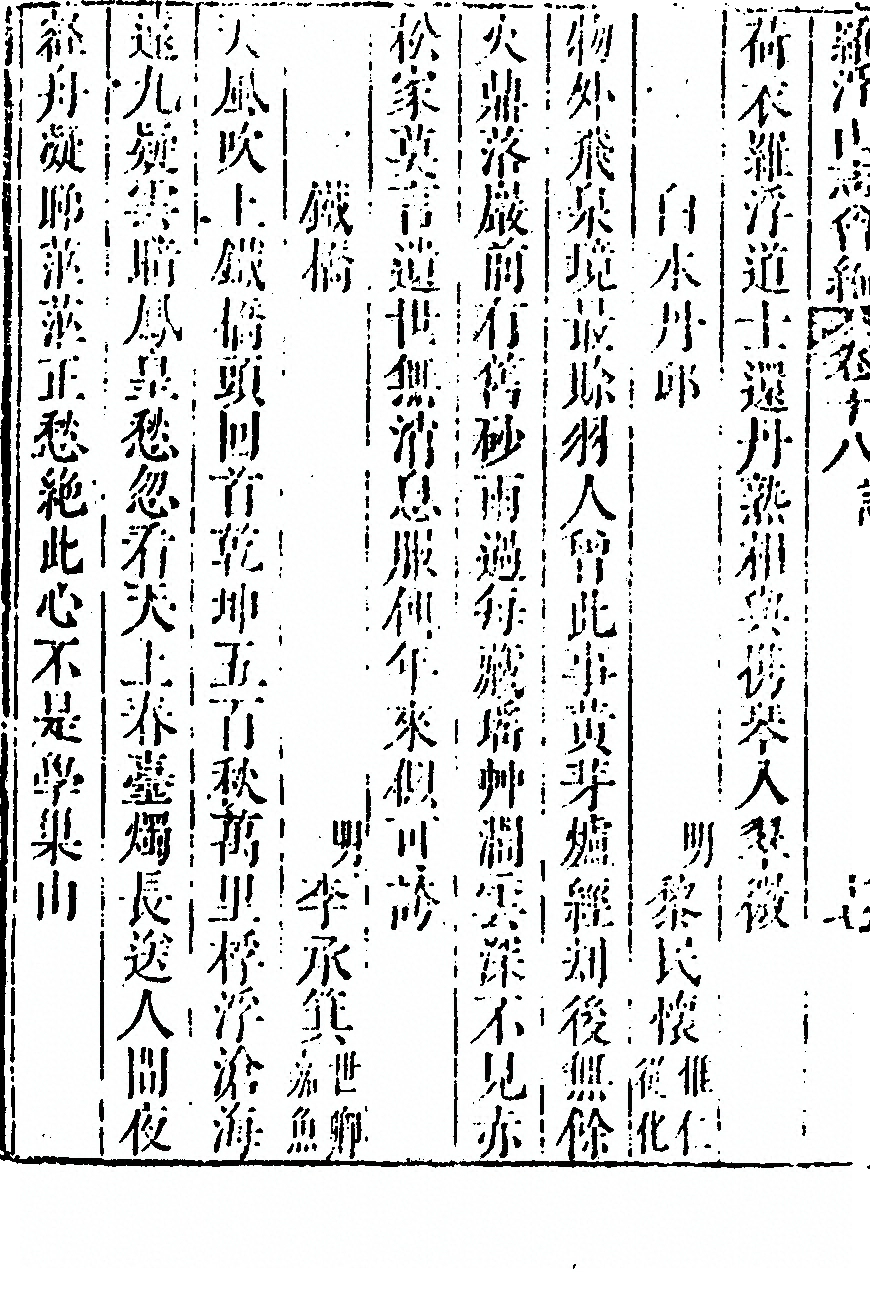 羅浮山志會編 卷十八 詩
荷衣羅浮道士還丹熟相與携琴入翠微
白水丹邱 明 黎民懷 惟仁 從化
物外飛泉境最賒羽人曾此事黄芽爐經刼後無餘
火鼎落巖前有舊砂雨過每藏瑤艸澗雲深不見赤
松家莫言遺世無消息服餌年來但可誇
鐵橋 明 李承箕 世卿 嘉魚
天風吹上鐵橋頭回首乾坤五百秋萬里桴浮滄海
遠九疑雲暗鳳皇愁忽看天上春臺燭長送人間夜
壑舟凝睇茫茫正愁絶此心不是學巢由